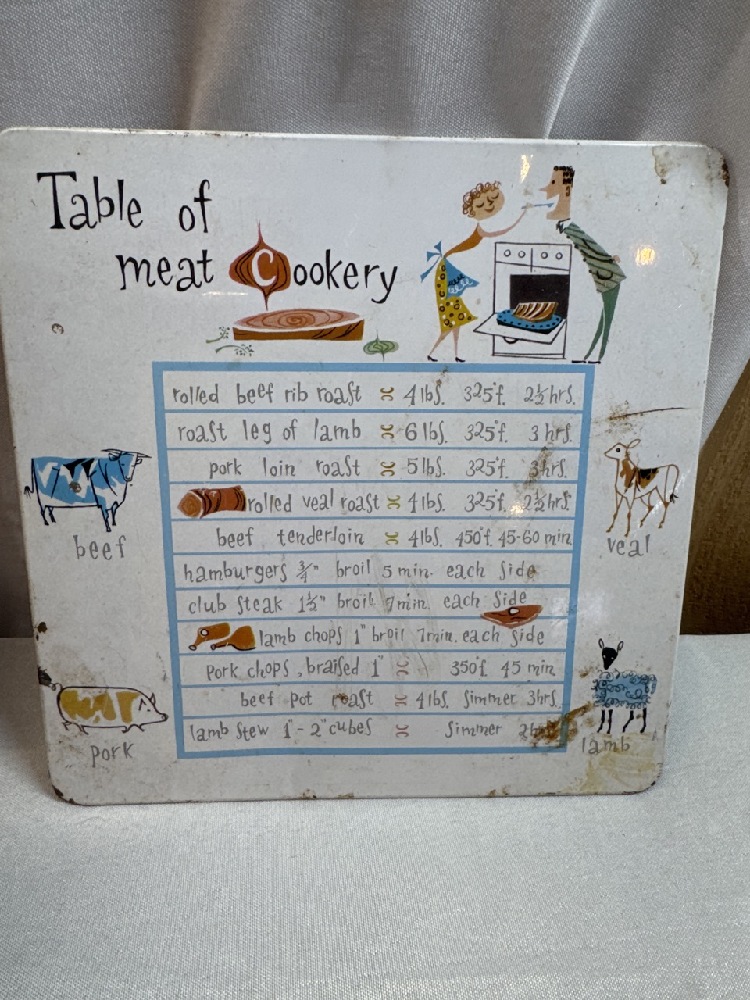 Table of
meat Cookery
rolled beef rib roast 4 lbs. 325°f. 2½ hrs.
roast leg of lamb 6 lbs. 325°f. 3 hrs.
pork loin roast 5 lbs. 325°f. 3 hrs.
rolled veal roast 4 lbs. 325°f. 2½ hrs.
beef tenderloin 4 lbs. 450°f. 45-60 min.
hamburgers ¾" broil 5 min. each side
club steak 1½" broil 7 min. each side
lamb chops 1" broil 7 min. each side
pork chops, braised 1" 350°f. 45 min
beef pot roast 4 lbs. simmer 3 hrs.
lamb stew 1" - 2" cubes simmer
beef
veal
pork
lamb